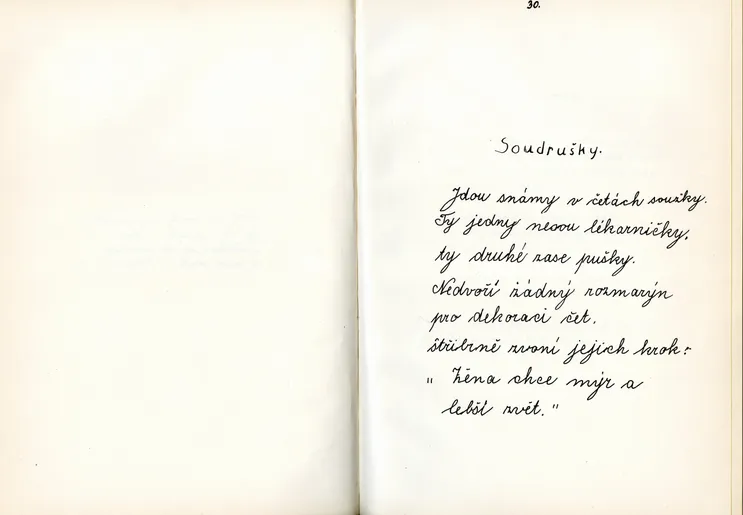 30.
Soudrušky.
Jdou snámy v četách soužky.
Ty jedny nesou lékarničky,
ty druhé zase pušky.
Nedvoří žádný rozmarýn
pro dekoraci čet.
štřibrně zvoní jejich krok:
„ Žěna chce mýr a
lebší zvět. "